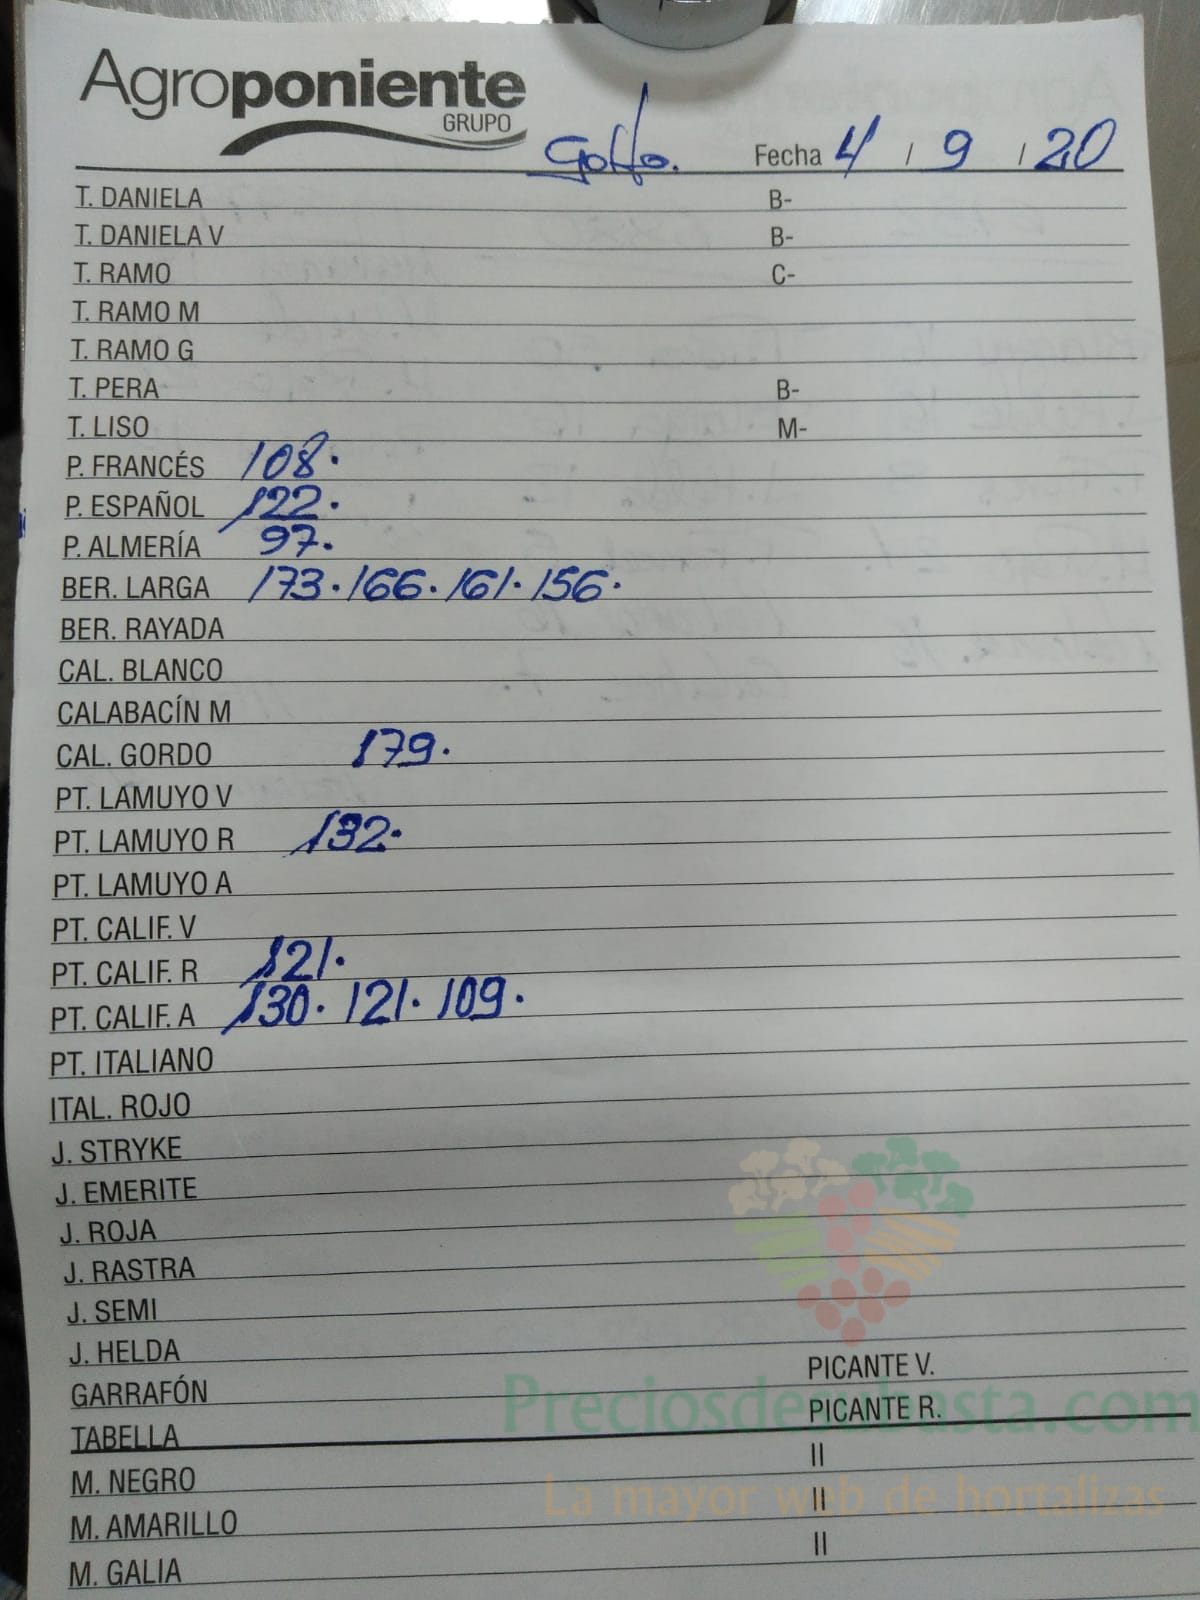 Agroponiente
GRUPO
Golfo. Fecha 4 / 9 / 20
T. DANIELA B-
T. DANIELA V B-
T. RAMO C-
T. RAMO M
T. RAMO G
T. PERA B-
T. LISO M-
P. FRANCÉS 108.
P. ESPAÑOL 122.
P. ALMERÍA 97.
BER. LARGA 173. 166. 161. 156.
BER. RAYADA
CAL. BLANCO
CALABACÍN M
CAL. GORDO 179.
PT. LAMUYO V
PT. LAMUYO R 132.
PT. LAMUYO A
PT. CALIF. V
PT. CALIF. R 121.
PT. CALIF. A 130. 121. 109.
PT. ITALIANO
ITAL. ROJO
J. STRYKE
J. EMERITE
J. ROJA
J. RASTRA
J. SEMI
J. HELDA
GARRAFÓN PICANTE V.
TABELLA PICANTE R.
M. NEGRO II
M. AMARILLO II
M. GALIA II
Preciosdesubasta.com
La mayor web de hortalizas